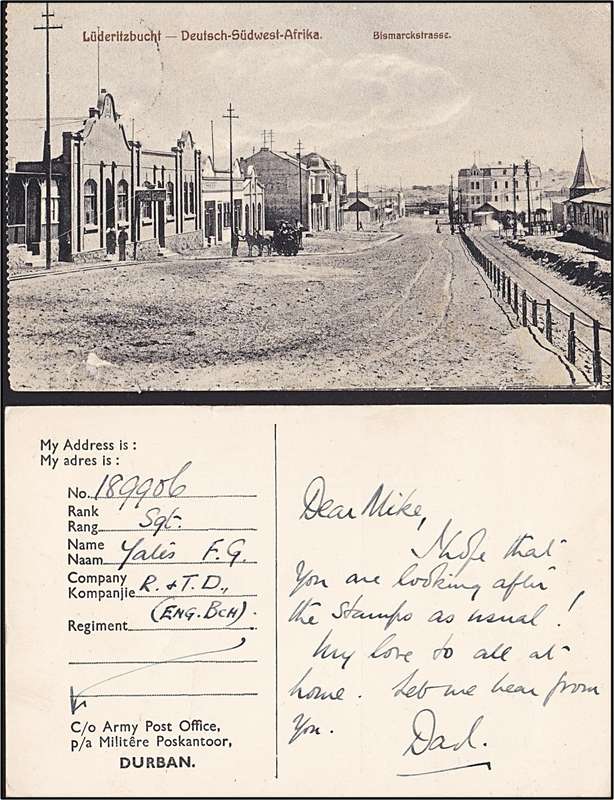 Lüderitzbucht — Deutsch-Südwest-Afrika. Bismarckstrasse.
My Address is :
My adres is :
No. 189906
Rank
Rang Sgt.
Name
Naam Yates F.G.
Company
Kompanjie R. & T.D.,
(ENG. BCH).
Regiment
C/o Army Post Office,
p/a Militêre Poskantoor,
DURBAN.
Dear Mike,
I hope that
you are looking after
the stamps as usual!
My love to all at
home. Let me hear from
you.
Dad.